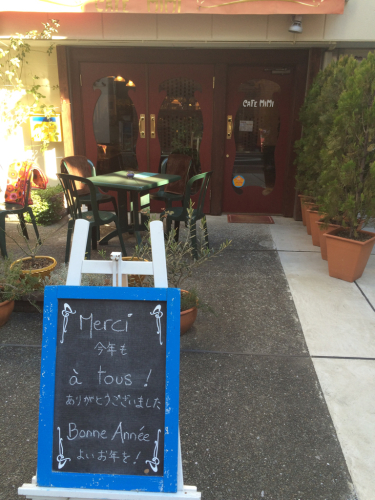 CAFE MIMI
Merci
今年も
à tous !
ありがとうございました
Bonne Année
よいお年を!